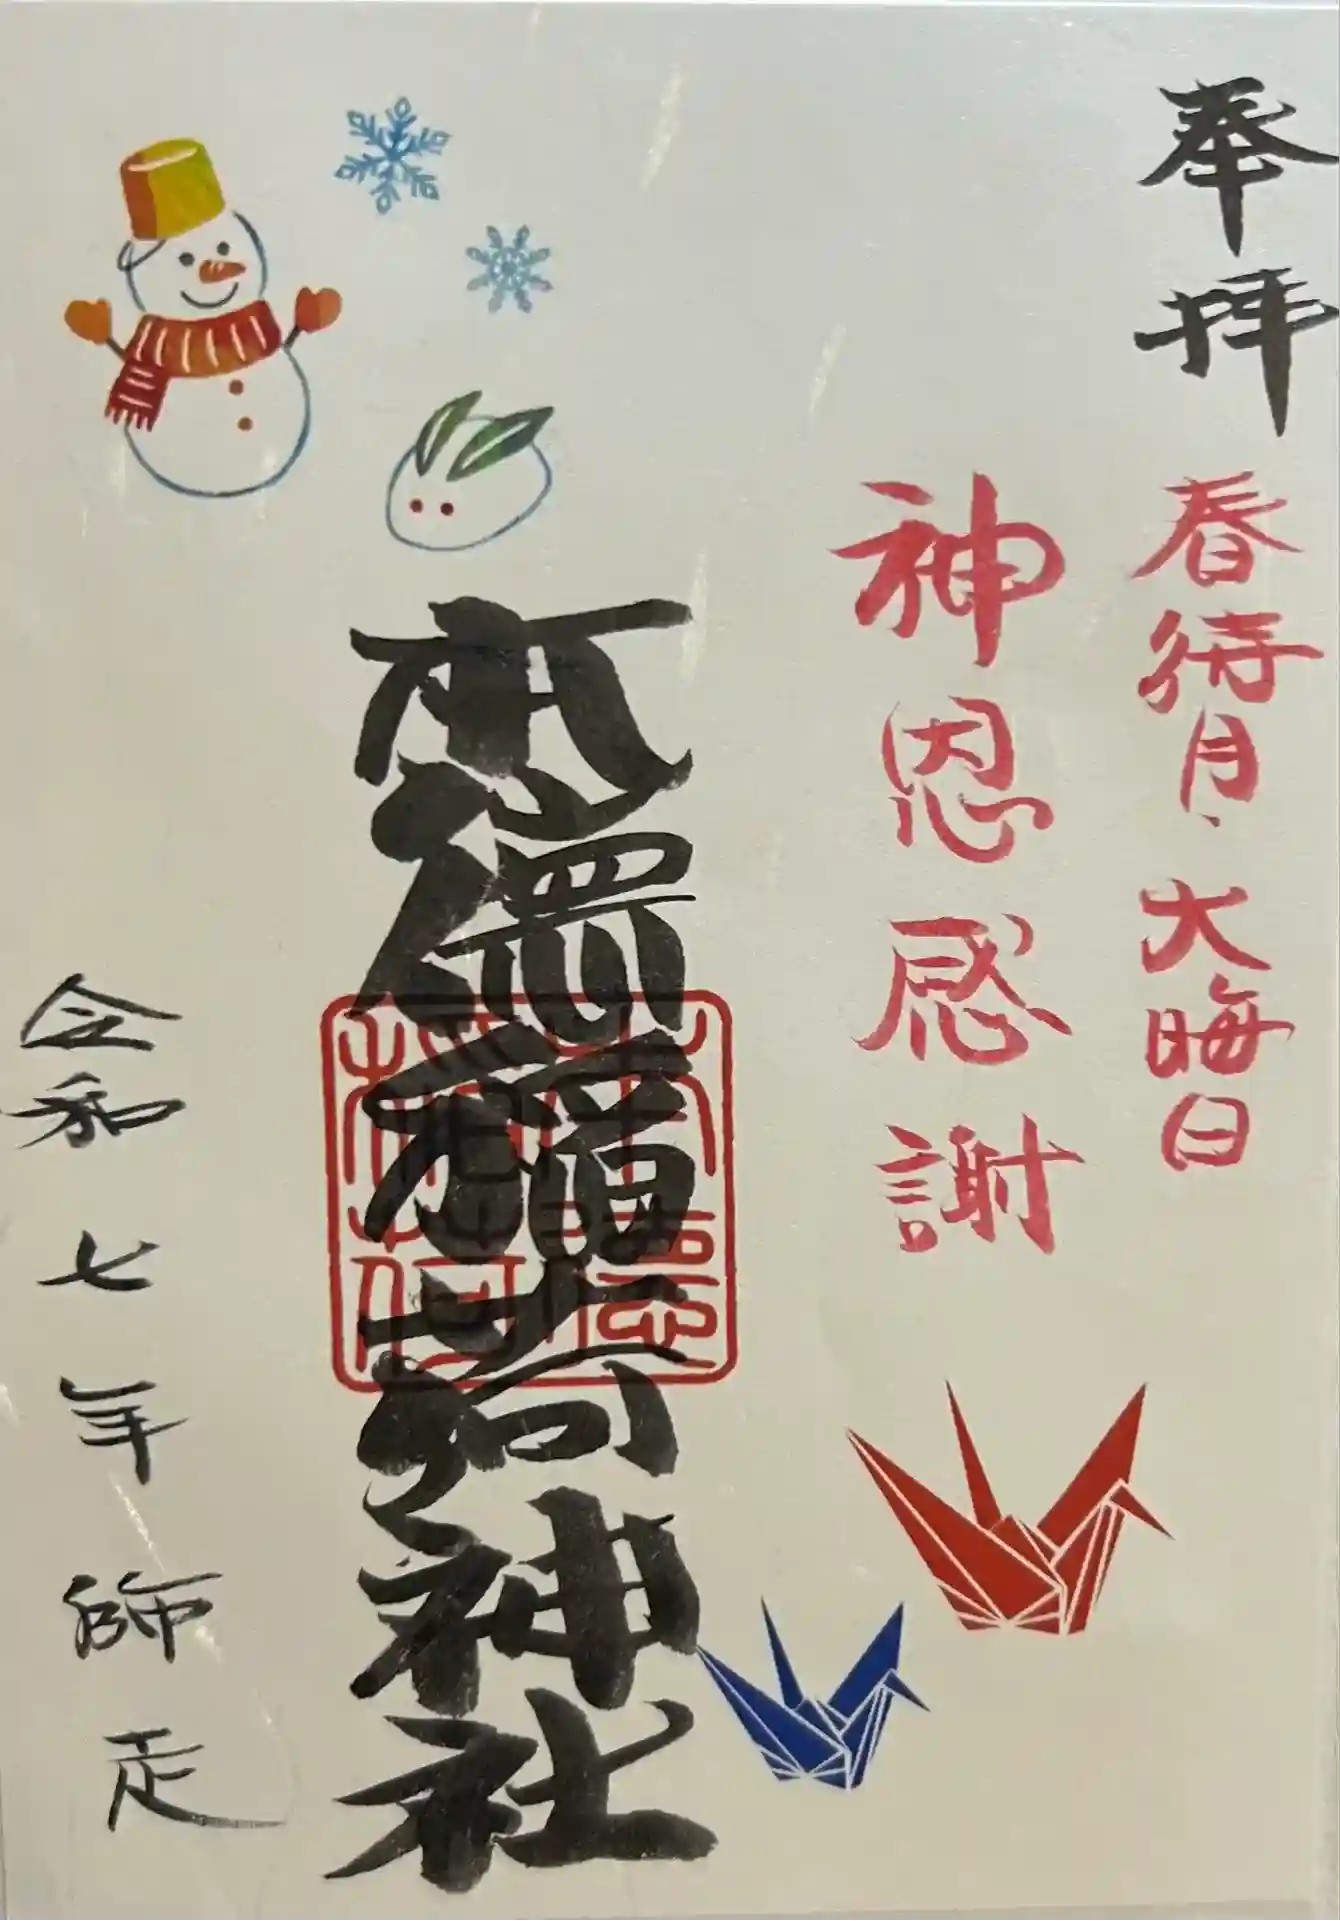 奉拝
春待月、大晦日
神恩感謝
本徳稲荷神社
令和七年師走